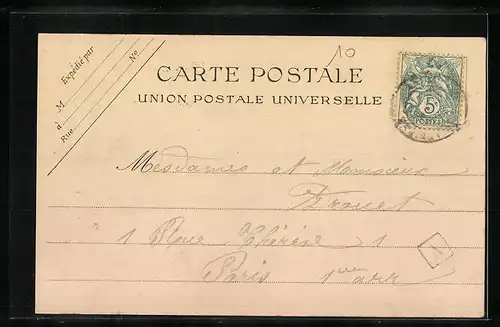 10
Expédié par
M
N°
à
Rue
CARTE POSTALE
UNION POSTALE UNIVERSELLE
5c
POSTES
Mesdames et Monsieur
Drouet
1 Rue Thérèse 1
Paris 1er arr